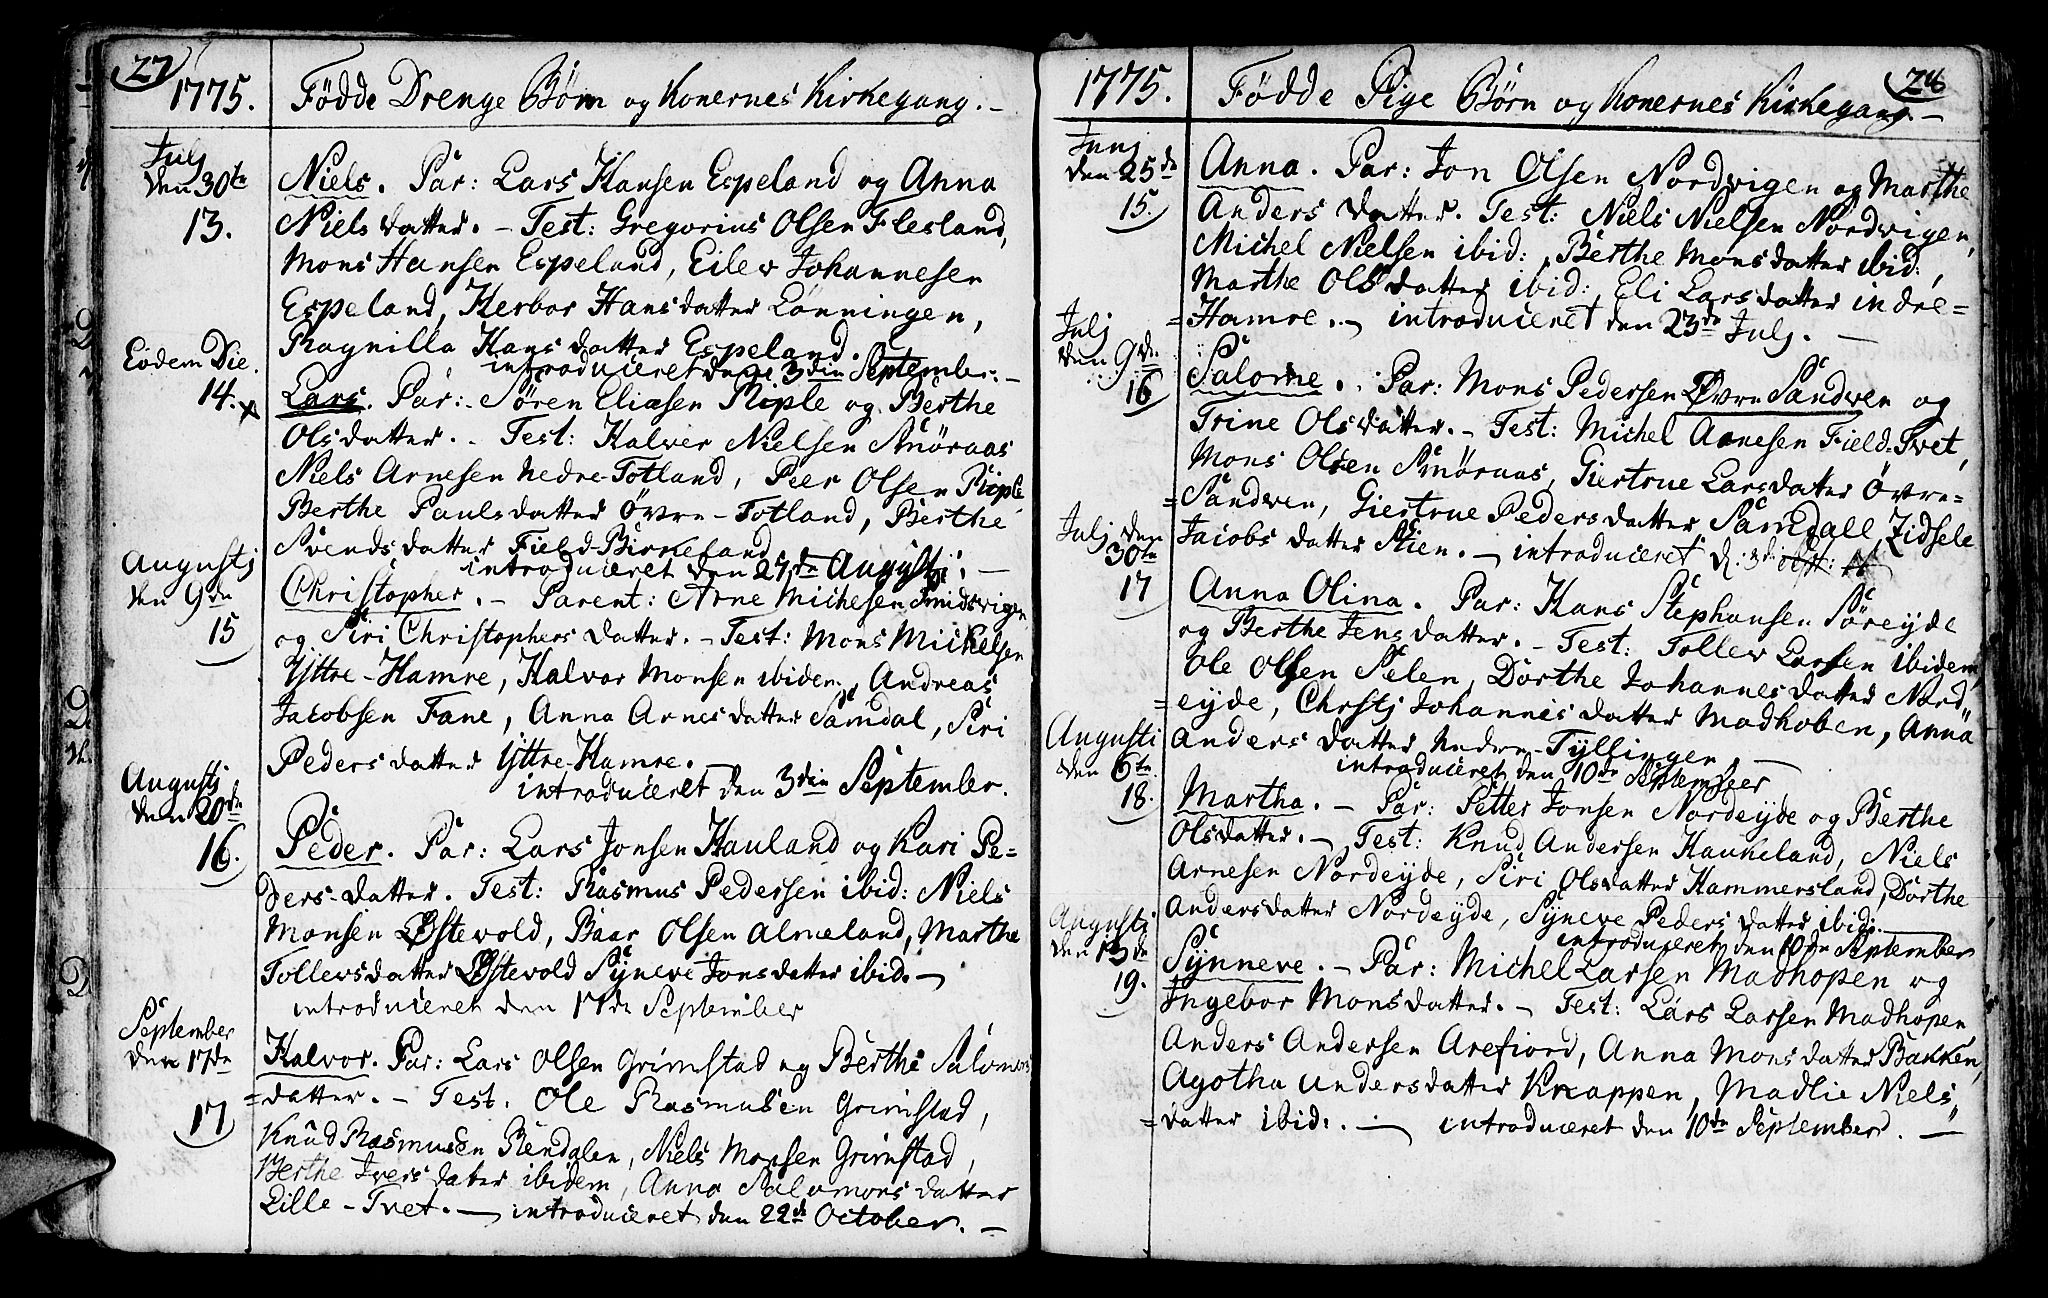 27
1775. Fødde Drenge Børn og Konernes Kirkegang. -
Julj
den 30te
13.
Niels. Par: Lars Hansen Espeland og Anna
Niels datter. - Test: Gregorius Olsen Flesland,
Mons Hansen Espeland, Eilev Johannesen
Espeland, Herbor Hans datter Lønningen,
Ragnilla Hans datter Espeland.
introduceret den 3die September. -
Eodem Die.
14. x
Lars. Par: Søren Eliæsen Riple og Berthe
Ols datter. - Test: Halver Nielsen Smøraas
Niels Arnesen Nedre-Totland, Peer Olsen Riple
Berthe Pauls datter Øvre-Totland, Berthe
Svends datter Field-Birkeland
introduceret den 27de Augustj: -
Augustj
den 9de
15
Christopher. - Parent: Arne Michelsen Smidsvigen
og Siri Christophers datter. - Test: Mons Mickelsen
Yttre-Hamre, Halvor Monsen ibidem, Andreas
Jacobsen Fane, Anna Arnes datter Samdal, Siri
Peders datter Yttre-Hamre. -
introduceret den 3die September.
Augustj
den 20de
16.
Peder. Par: Lars Jonsen Hauland og Kari Pe=
ders-datter. Test: Rasmus Pedersen ibid: Niels
Monsen Østevold, Baar Olsen Almeland, Marthe
Tollevsdatter Østevold Syneve Jonsdatter ibid. -
introduceret den 17de September
September
den 17de
17
Halvor. Par: Lars Olsen Grimstad og Berthe Salomons
=datter. - Test. Ole Rasmusen Grimstad,
Knud Rasmusen Rendalen, Niels Monsen Grimstad,
Berthe Ivers datter ibidem, Anna Salomons datter
Lille-Tvet. - introduceret den 22de October. -
28
1775. Fødde Pige Børn og Konernes Kirkegang. -
Junj
den 25de
15.
Anna. Par: Jon Olsen Nordvigen og Marthe
Anders datter. Test: Niels Nielsen Nordvigen,
Michel Nielsen ibid:, Berthe Mons datter ibid:,
Marthe Ols datter ibid: Eli Lars datter indre=
=Hamre. - introduceret den 23de Julj. -
Julj
den 9de
16
Salome. Par: Mons Pedersen Øvre Sandven og
Trine Ols datter. - Test: Michel Arnesen Field-Tvet,
Mons Olsen Smøraas, Giertrue Lars datter Øvre=
=Sandven, Giertrue Peders datter Samdall, Zidsele
Jacobs datter Stien. - introduceret d: 3di
Julj den
30te
17
Anna Olina. Par: Hans Stephansen Søreyde
og Berthe Jens datter. - Test: Tollev Larsen ibidem,
Ole Olsen Selen, Dorthe Johannes datter Nord
=eyde, Christj Johannes datter Madhoben, Anna
Anders datter Nedre-Tyssingen, -
introduceret den 10de September
Augusti
den 6te
18.
Martha. - Par: Petter Jonsen Nordeyde og Berthe
Olsdatter. - Test: Knud Andersen Haukeland, Niels
Arnesen Nordeyde, Siri Olsdatter Hammersland, Dorthe
Andersdatter Nordeyde, Syneve Peders datter ibid:
introduceret den 10de September
Augusti
den 13de
19.
Synneve. - Par: Michel Larsen Madhopen og
Ingebor Monsdatter. - Test: Lars Larsen Madhopen
Anders Andersen Arefiord, Anna Mons datter Bakken,
Agotha Andersdatter Knappen, Madlie Niels
=datter ibid:. - introduceret den 10de September. -